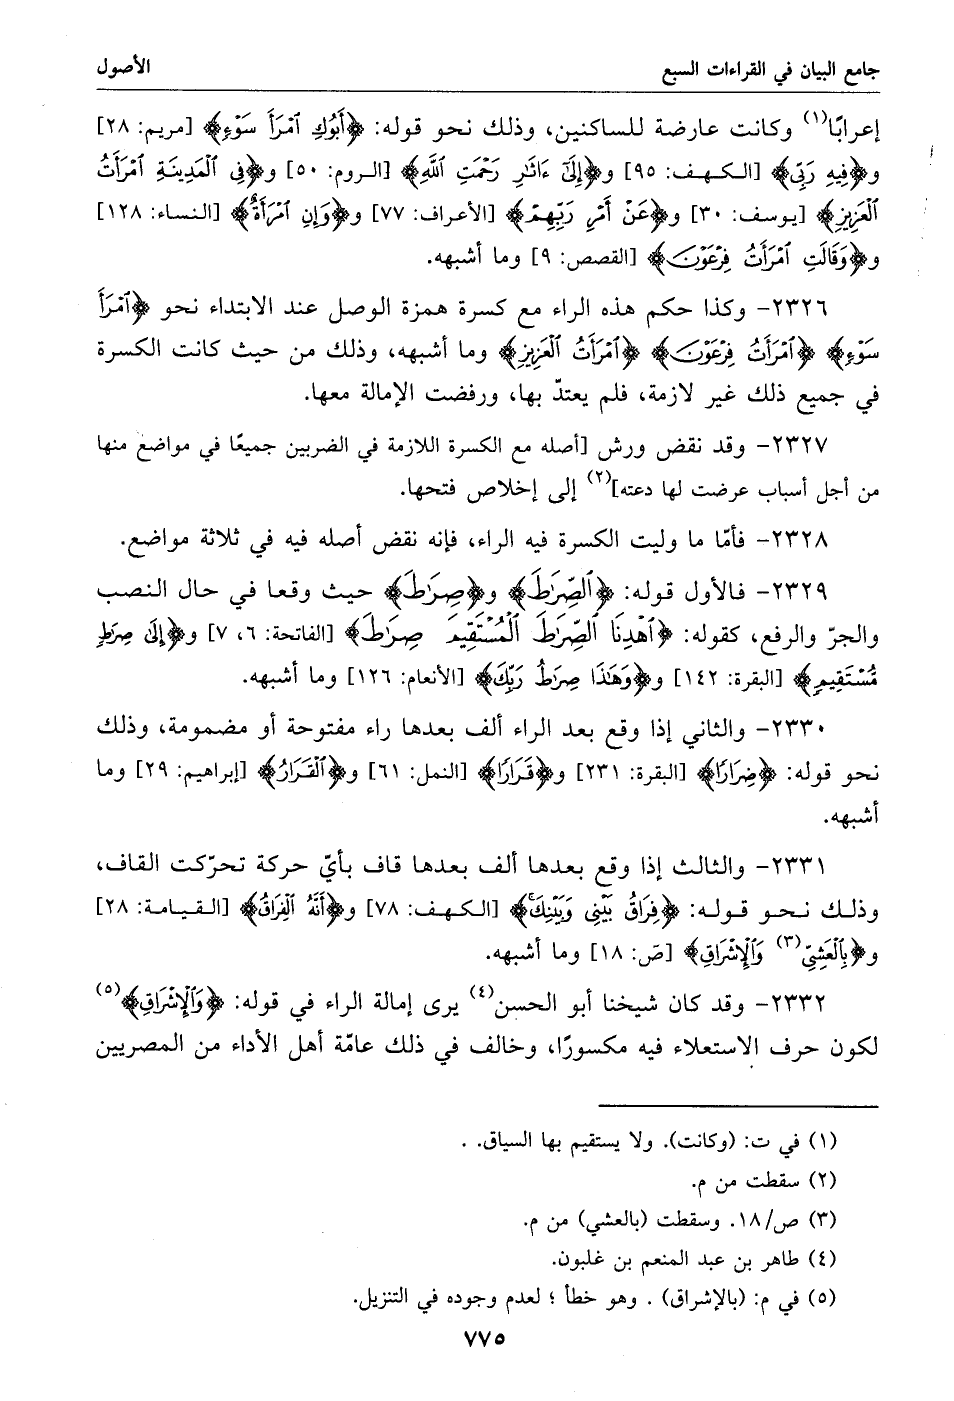 جامع البيان في القراءات السبع الأصول
إعرابًا(١) وكانت عارضة للساكنين، وذلك نحو قوله: ﴿أَبُوكِ ٱمْرَأَ سَوْءٍ﴾ [مريم: ٢٨]
و﴿فِيهِ رَبِّى﴾ [الكهف: ٩٥] و﴿إِلَىٰٓ ءَاثَٰرِ رَحْمَتِ ٱللَّهِ﴾ [الروم: ٥٠] و﴿فِى ٱلْمَدِينَةِ ٱمْرَأَتُ
ٱلْعَزِيزِ﴾ [يوسف: ٣٠] و﴿عَنْ أَمْرِ رَبِّهِمْ﴾ [الأعراف: ٧٧] و﴿وَإِنِ ٱمْرَأَةٌ﴾ [النساء: ١٢٨]
و﴿وَقَالَتِ ٱمْرَأَتُ فِرْعَوْنَ﴾ [القصص: ٩] وما أشبهه.
٢٣٢٦- وكذا حكم هذه الراء مع كسرة همزة الوصل عند الابتداء نحو ﴿ٱمْرَأَ
سَوْءٍ﴾ ﴿ٱمْرَأَتُ فِرْعَوْنَ﴾ ﴿ٱمْرَأَتُ ٱلْعَزِيزِ﴾ وما أشبهه، وذلك من حيث كانت الكسرة
في جميع ذلك غير لازمة، فلم يعتدّ بها، ورفضت الإمالة معها.
٢٣٢٧- وقد نقض ورش [أصله مع الكسرة اللازمة في الضربين جميعًا في مواضع منها
من أجل أسباب عرضت لها دعته](٢) إلى إخلاص فتحها.
٢٣٢٨- فأمّا ما وليت الكسرة فيه الراء، فإنه نقض أصله فيه في ثلاثة مواضع.
٢٣٢٩- فالأول قوله: ﴿ٱلصِّرَٰطَ﴾ و﴿صِرَٰطَ﴾ حيث وقعا في حال النصب
والجرّ والرفع، كقوله: ﴿ٱهْدِنَا ٱلصِّرَٰطَ ٱلْمُسْتَقِيمَ صِرَٰطَ﴾ [الفاتحة: ٦، ٧] و﴿إِلَىٰ صِرَٰطٍ
مُّسْتَقِيمٍ﴾ [البقرة: ١٤٢] و﴿وَهَٰذَا صِرَٰطُ رَبِّكَ﴾ [الأنعام: ١٢٦] وما أشبهه.
٢٣٣٠- والثاني إذا وقع بعد الراء ألف بعدها راء مفتوحة أو مضمومة، وذلك
نحو قوله: ﴿ضِرَارًا﴾ [البقرة: ٢٣١] و﴿قَرَارًا﴾ [النمل: ٦١] و﴿ٱلْقَرَارُ﴾ [إبراهيم: ٢٩] وما
أشبهه.
٢٣٣١- والثالث إذا وقع بعدها ألف بعدها قاف بأيّ حركة تحرّكت القاف،
وذلك نحو قوله: ﴿فِرَاقُ بَيْنِى وَبَيْنِكَ﴾ [الكهف: ٧٨] و﴿أَنَّهُ ٱلْفِرَاقُ﴾ [القيامة: ٢٨]
و﴿بِٱلْعَشِىِّ(٣) وَٱلْإِشْرَاقِ﴾ [صَ: ١٨] وما أشبهه.
٢٣٣٢- وقد كان شيخنا أبو الحسن(٤) يرى إمالة الراء في قوله: ﴿وَٱلْإِشْرَاقِ﴾(٥)
لكون حرف الاستعلاء فيه مكسورًا، وخالف في ذلك عامّة أهل الأداء من المصريين
(١) في ت: (وكانت). ولا يستقيم بها السياق. .
(٢) سقطت من م.
(٣) ص/١٨. وسقطت (بالعشي) من م.
(٤) طاهر بن عبد المنعم بن غلبون.
(٥) في م: (بالإشراق) . وهو خطأ ؛ لعدم وجوده في التنزيل.
٧٧٥